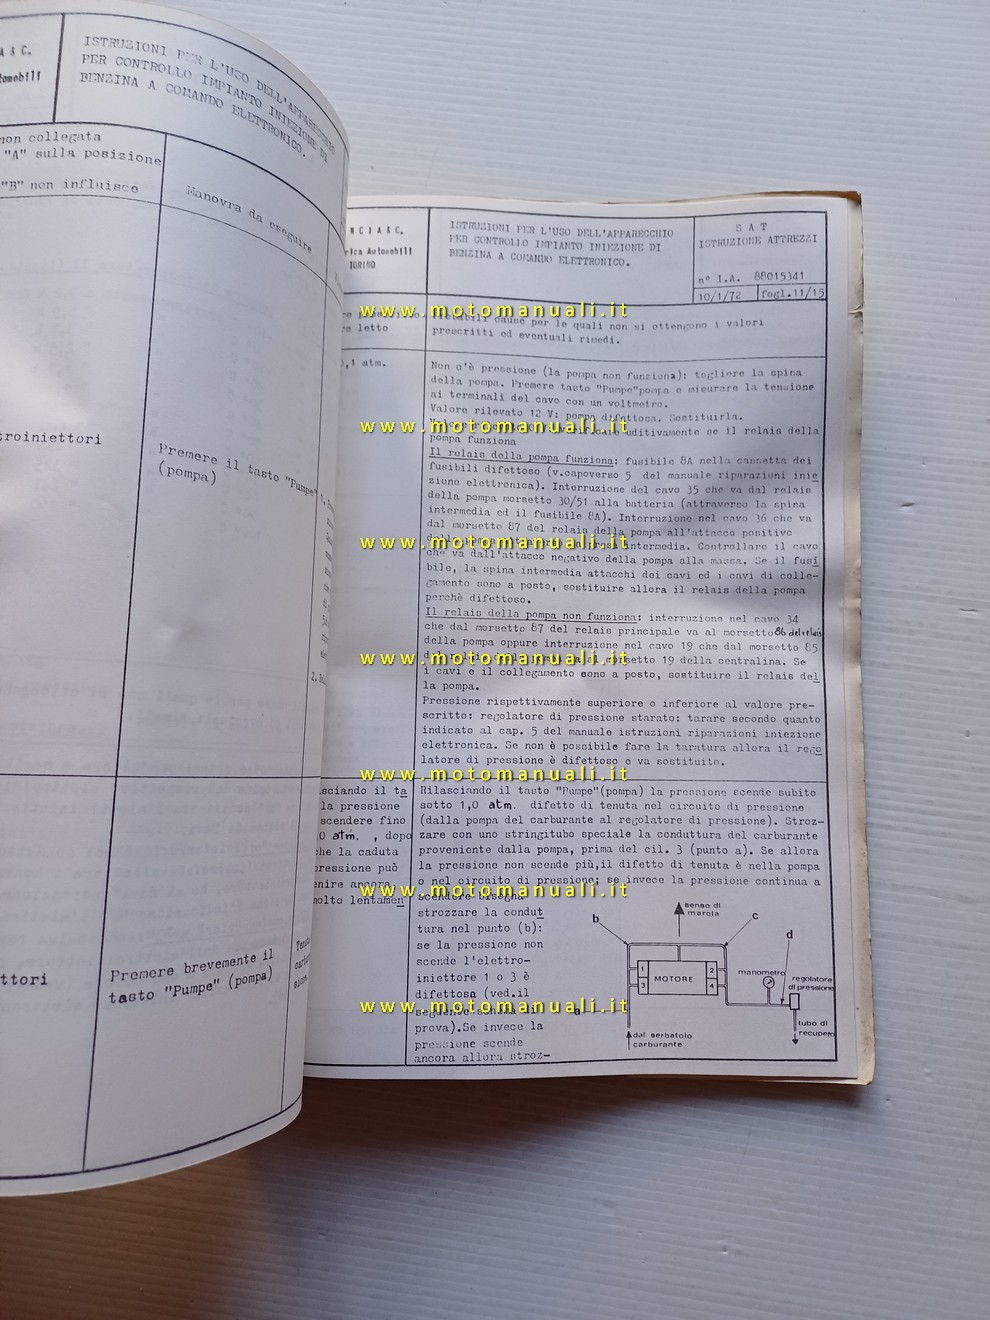 A & C.
tomobili
ISTRUZIONI PER L'USO DELL'APPARECCHIO
PER CONTROLLO IMPIANTO INIEZIONE DI
BENZINA A COMANDO ELETTRONICO.
non collegata
"A" sulla posizione
"B" non influisce
Manovra da eseguire
troiniettori
Premere il tasto "Pumpe"
(pompa)
ttori
Premere brevemente il
tasto "Pumpe" (pompa)
N C I A & C.
rica Automobili
TORINO
ISTRUZIONI PER L'USO DELL'APPARECCHIO
PER CONTROLLO IMPIANTO INIEZIONE DI
BENZINA A COMANDO ELETTRONICO.
S A T
ISTRUZIONE ATTREZZI
n° I.A. 88015341
10/1/72 fogl.11/15
www.motomanuali.it
re letto
cause per le quali non si ottengono i valori
prescritti ed eventuali rimedi.
,1 atm.
Non c'è pressione (la pompa non funziona): togliere la spina
della pompa. Premere tasto "Pumpe"pompa e misurare la tensione
ai terminali del cavo con un voltmetro.
Valore rilevato 12 V: pompa difettosa. Sostituirla.
www.motomanuali.it
uditivamente se il relais della
pompa funziona
Il relais della pompa funziona: fusibile 8A nella cassetta dei
fusibili difettoso (v.capoverso 5 del manuale riparazioni inie
zione elettronica). Interruzione del cavo 35 che va dal relais
della pompa morsetto 30/51 alla batteria (attraverso la spina
intermedia ed il fusibile 8A). Interruzione nel cavo 36 che va
dal morsetto 87 del relais della pompa all'attacco positivo
www.motomanuali.it
intermedia. Controllare il cavo
che va dall'attacco negativo della pompa alla massa. Se il fusi
bile, la spina intermedia attacchi dei cavi ed i cavi di colle-
gamento sono a posto, sostituire allora il relais della pompa
perchè difettoso.
Il relais della pompa non funziona: interruzione nel cavo 34
che dal morsetto 87 del relais principale va al morsetto 86 del relais
della pompa oppure interruzione nel cavo 19 che dal morsetto 85
www.motomanuali.it
morsetto 19 della centralina. Se
i cavi e il collegamento sono a posto, sostituire il relais del
la pompa.
Pressione rispettivamente superiore o inferiore al valore pre-
scritto: regolatore di pressione starato: tarare secondo quanto
indicato al cap. 5 del manuale istruzioni riparazioni iniezione
elettronica. Se non è possibile fare la taratura allora il rego
latore di pressione è difettoso e va sostituito.
www.motomanuali.it
sciando il ta
la pressione
scendere fino
,0 atm. , dopo
che la caduta
pressione può
enire ancora
molto lentamen
Rilasciando il tasto "Pumpe"(pompa) la pressione scende subito
sotto 1,0 atm. difetto di tenuta nel circuito di pressione
(dalla pompa del carburante al regolatore di pressione). Stroz-
zare con uno stringitubo speciale la conduttura del carburante
proveniente dalla pompa, prima del cil. 3 (punto a). Se allora
la pressione non scende più,il difetto di tenuta è nella pompa
o nel circuito di pressione; se invece la pressione continua a
www.motomanuali.it
scendere bisogna
strozzare la condut
tura nel punto (b):
se la pressione non
scende l'elettro-
iniettore 1 o 3 è
difettoso (ved.il
seguente schema di
prova).Se invece la
pressione scende
ancora allora stroz-
www.motomanuali.it
senso di
marcia
b
c
d
a
1
2
3
4
MOTORE
manometro
regolatore
di pressione
tubo di
recupero
dal serbatoio
carburante